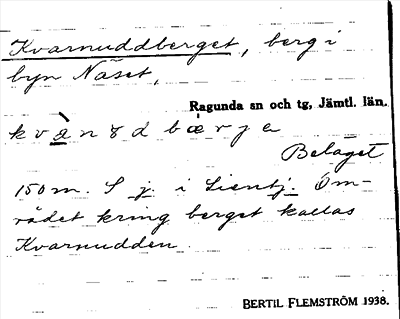 Kvarnuddberget, berg i
byn Näset,
Ragunda sn och tg, Jämtl. län.
Beläget
150 m. S j. i Om-
rådet kring berget kallas
Kvarnudden.
BERTIL FLEMSTRÖM 1938.